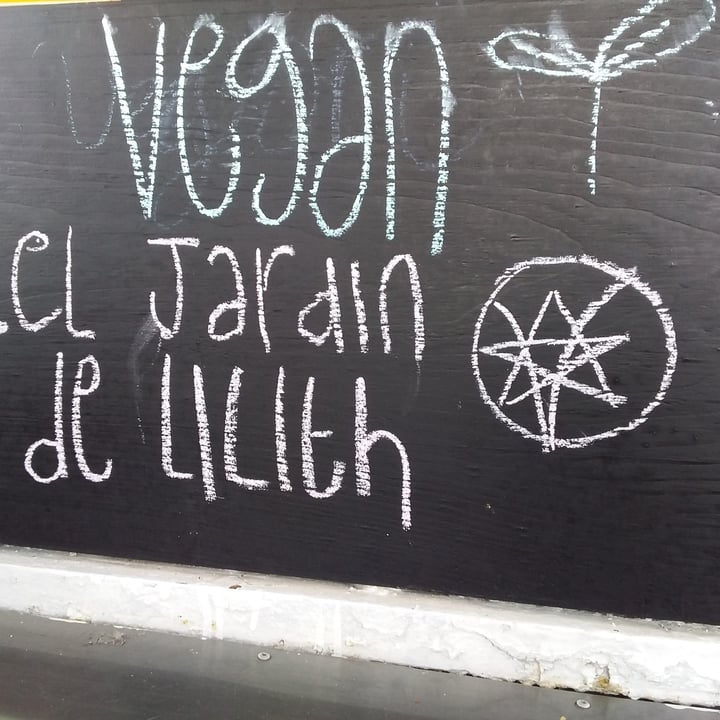 vegan
el Jardin
de Lilith